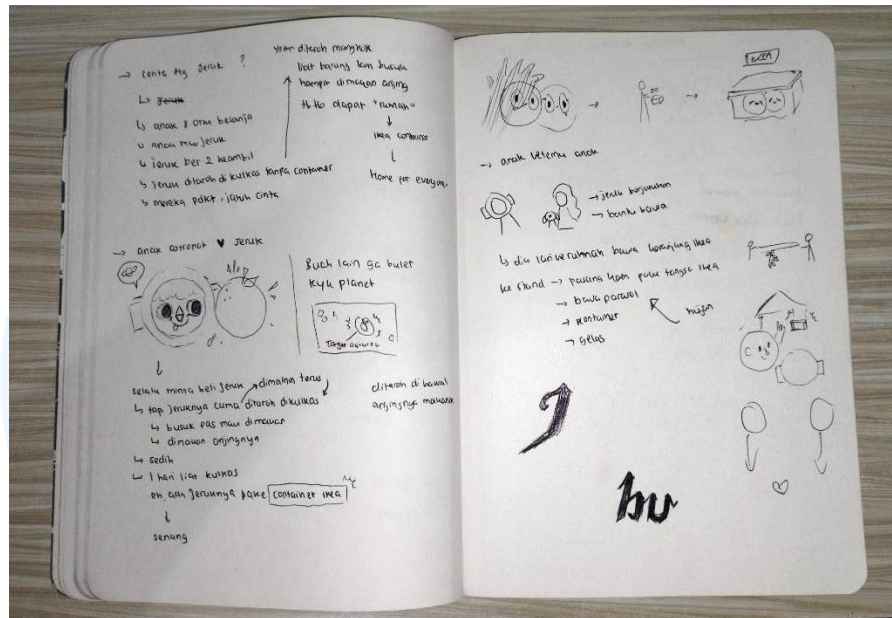 → cerita ttg Jeruk ?
↳ Jeruk
↳ anak & ortu belanja
↳ anak mau jeruk
↳ jeruk ber 2 keambil
↳ jeruk ditaroh di kulkas tanpa container
↳ mereka pdkt, jatuh cinta
ditaroh mangkok
liat barang lain busuk
hampir dimakan anjing
tb tb dapat "rumah"
↓
ikea container
↓
Home for everyone.
→ anak astronot ♥ Jeruk
Buah lain ga bulet
kyk planet
↓
selalu minta beli jeruk → dimainin terus
↳ tap jeruknya cuma ditaroh dikulkas
↳ busuk pas mau dimakan
↳ dimakan anjingnya
↳ sedih
↳ 1 hari liat kulkas
eh, ada jeruknya pake container ikea
↓
senang
ditaroh di bawah
anjingnya makanin
IKEA
→ anak ketemu anak
→ jeruk berjatuhan
→ bantu bawa
↳ dia lari ke rumah bawa keranjang ikea
ke stand → pasang kain pake tangga ikea
→ bawa parasol
→ kontainer
→ gelas
hujan
J
hu